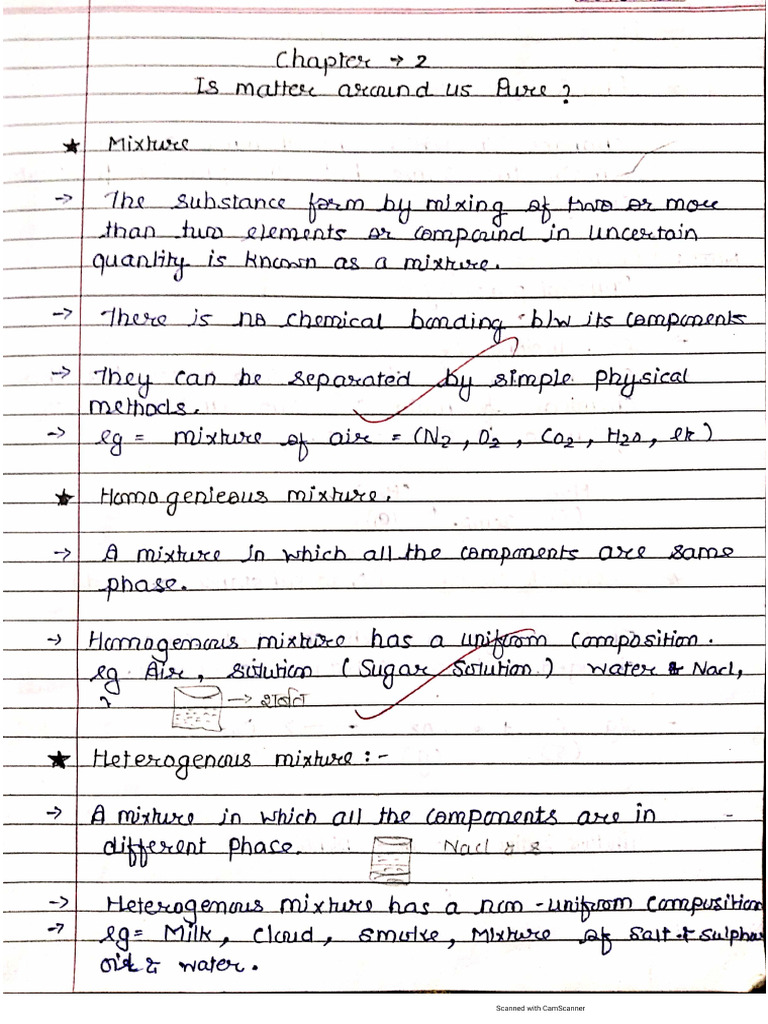 Chapter → 2
Is matter around us Pure?
★ Mixture
→ The substance form by mixing of two or more
than two elements or compound in uncertain
quantity is known as a mixture.
→ There is no chemical bonding b/w its components
→ They can be separated by simple physical
methods.
→ eg = mixture of air = (N2, O2, CO2, H2O, etc)
★ Homogenieous mixture.
→ A mixture in which all the components are same
phase.
→ Homogenous mixture has a unifrom composition.
eg. Air, solution (Sugar Solution) water & Nacl,
→ शर्बत
★ Heterogenous mixture :-
→ A mixture in which all the components are in
different phase.
Nacl & S
→ Heterogenous mixture has a non-unifrom composition
→ eg = Milk, cloud, smoke, Mixture of salt & sulphar
oil & water.
Scanned with CamScanner